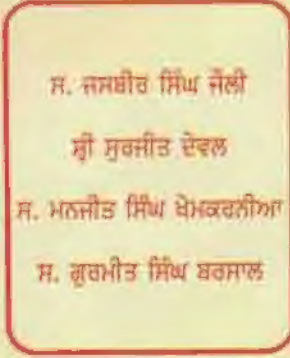 ਸ. ਜਸਬੀਰ ਸਿੰਘ ਜੌਲੀ
ਸ਼੍ਰੀ ਸੁਰਜੀਤ ਦੇਵਲ
ਸ. ਮਨਜੀਤ ਸਿੰਘ ਖੇਮਕਰਨੀਆ
ਸ. ਗੁਰਮੀਤ ਸਿੰਘ ਬਰਸਾਲ